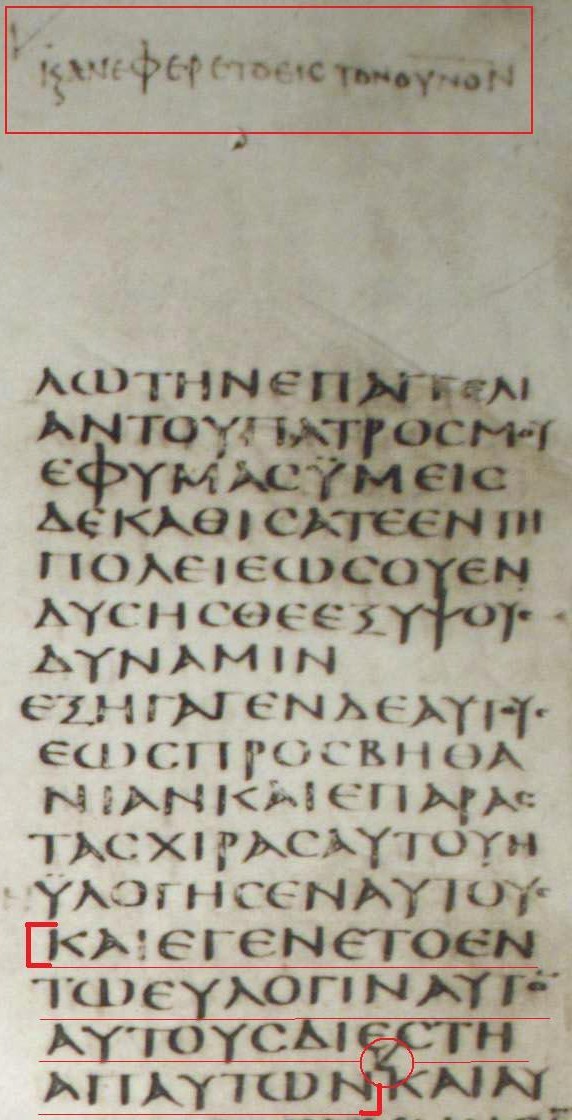 ϗΑΝΕΦΕΡΕΤΟΕΙϹΤΟΝΟΥΝΟΝ
ΛΩΤΗΝΕΠΑΓΓΕΛΙ
ΑΝΤΟΥΠΑΤΡΟϹΜΟΥ
ΕΦΥΜΑϹΫΜΕΙϹ
ΔΕΚΑΘΙϹΑΤΕΕΝΤΗ
ΠΟΛΕΙΕΩϹΟΥΕΝ
ΔΥϹΗϹΘΕΕΞΥΨΟΥϹ
ΔΥΝΑΜΙΝ
ΕΞΗΓΑΓΕΝΔΕΑΥΤΟΥϹ
ΕΩϹΠΡΟϹΒΗΘΑ
ΝΙΑΝΚΑΙΕΠΑΡΑϹ
ΤΑϹΧΙΡΑϹΑΥΤΟΥΗ
ΫΛΟΓΗϹΕΝΑΥΤΟΥϹ
ΚΑΙΕΓΕΝΕΤΟΕΝ
ΤΩΕΥΛΟΓΙΝΑΥΤΟΝ
ΑΥΤΟΥϹΔΙΕϹΤΗ
ΑΠΑΥΤΩΝΚΑΙΑΥ